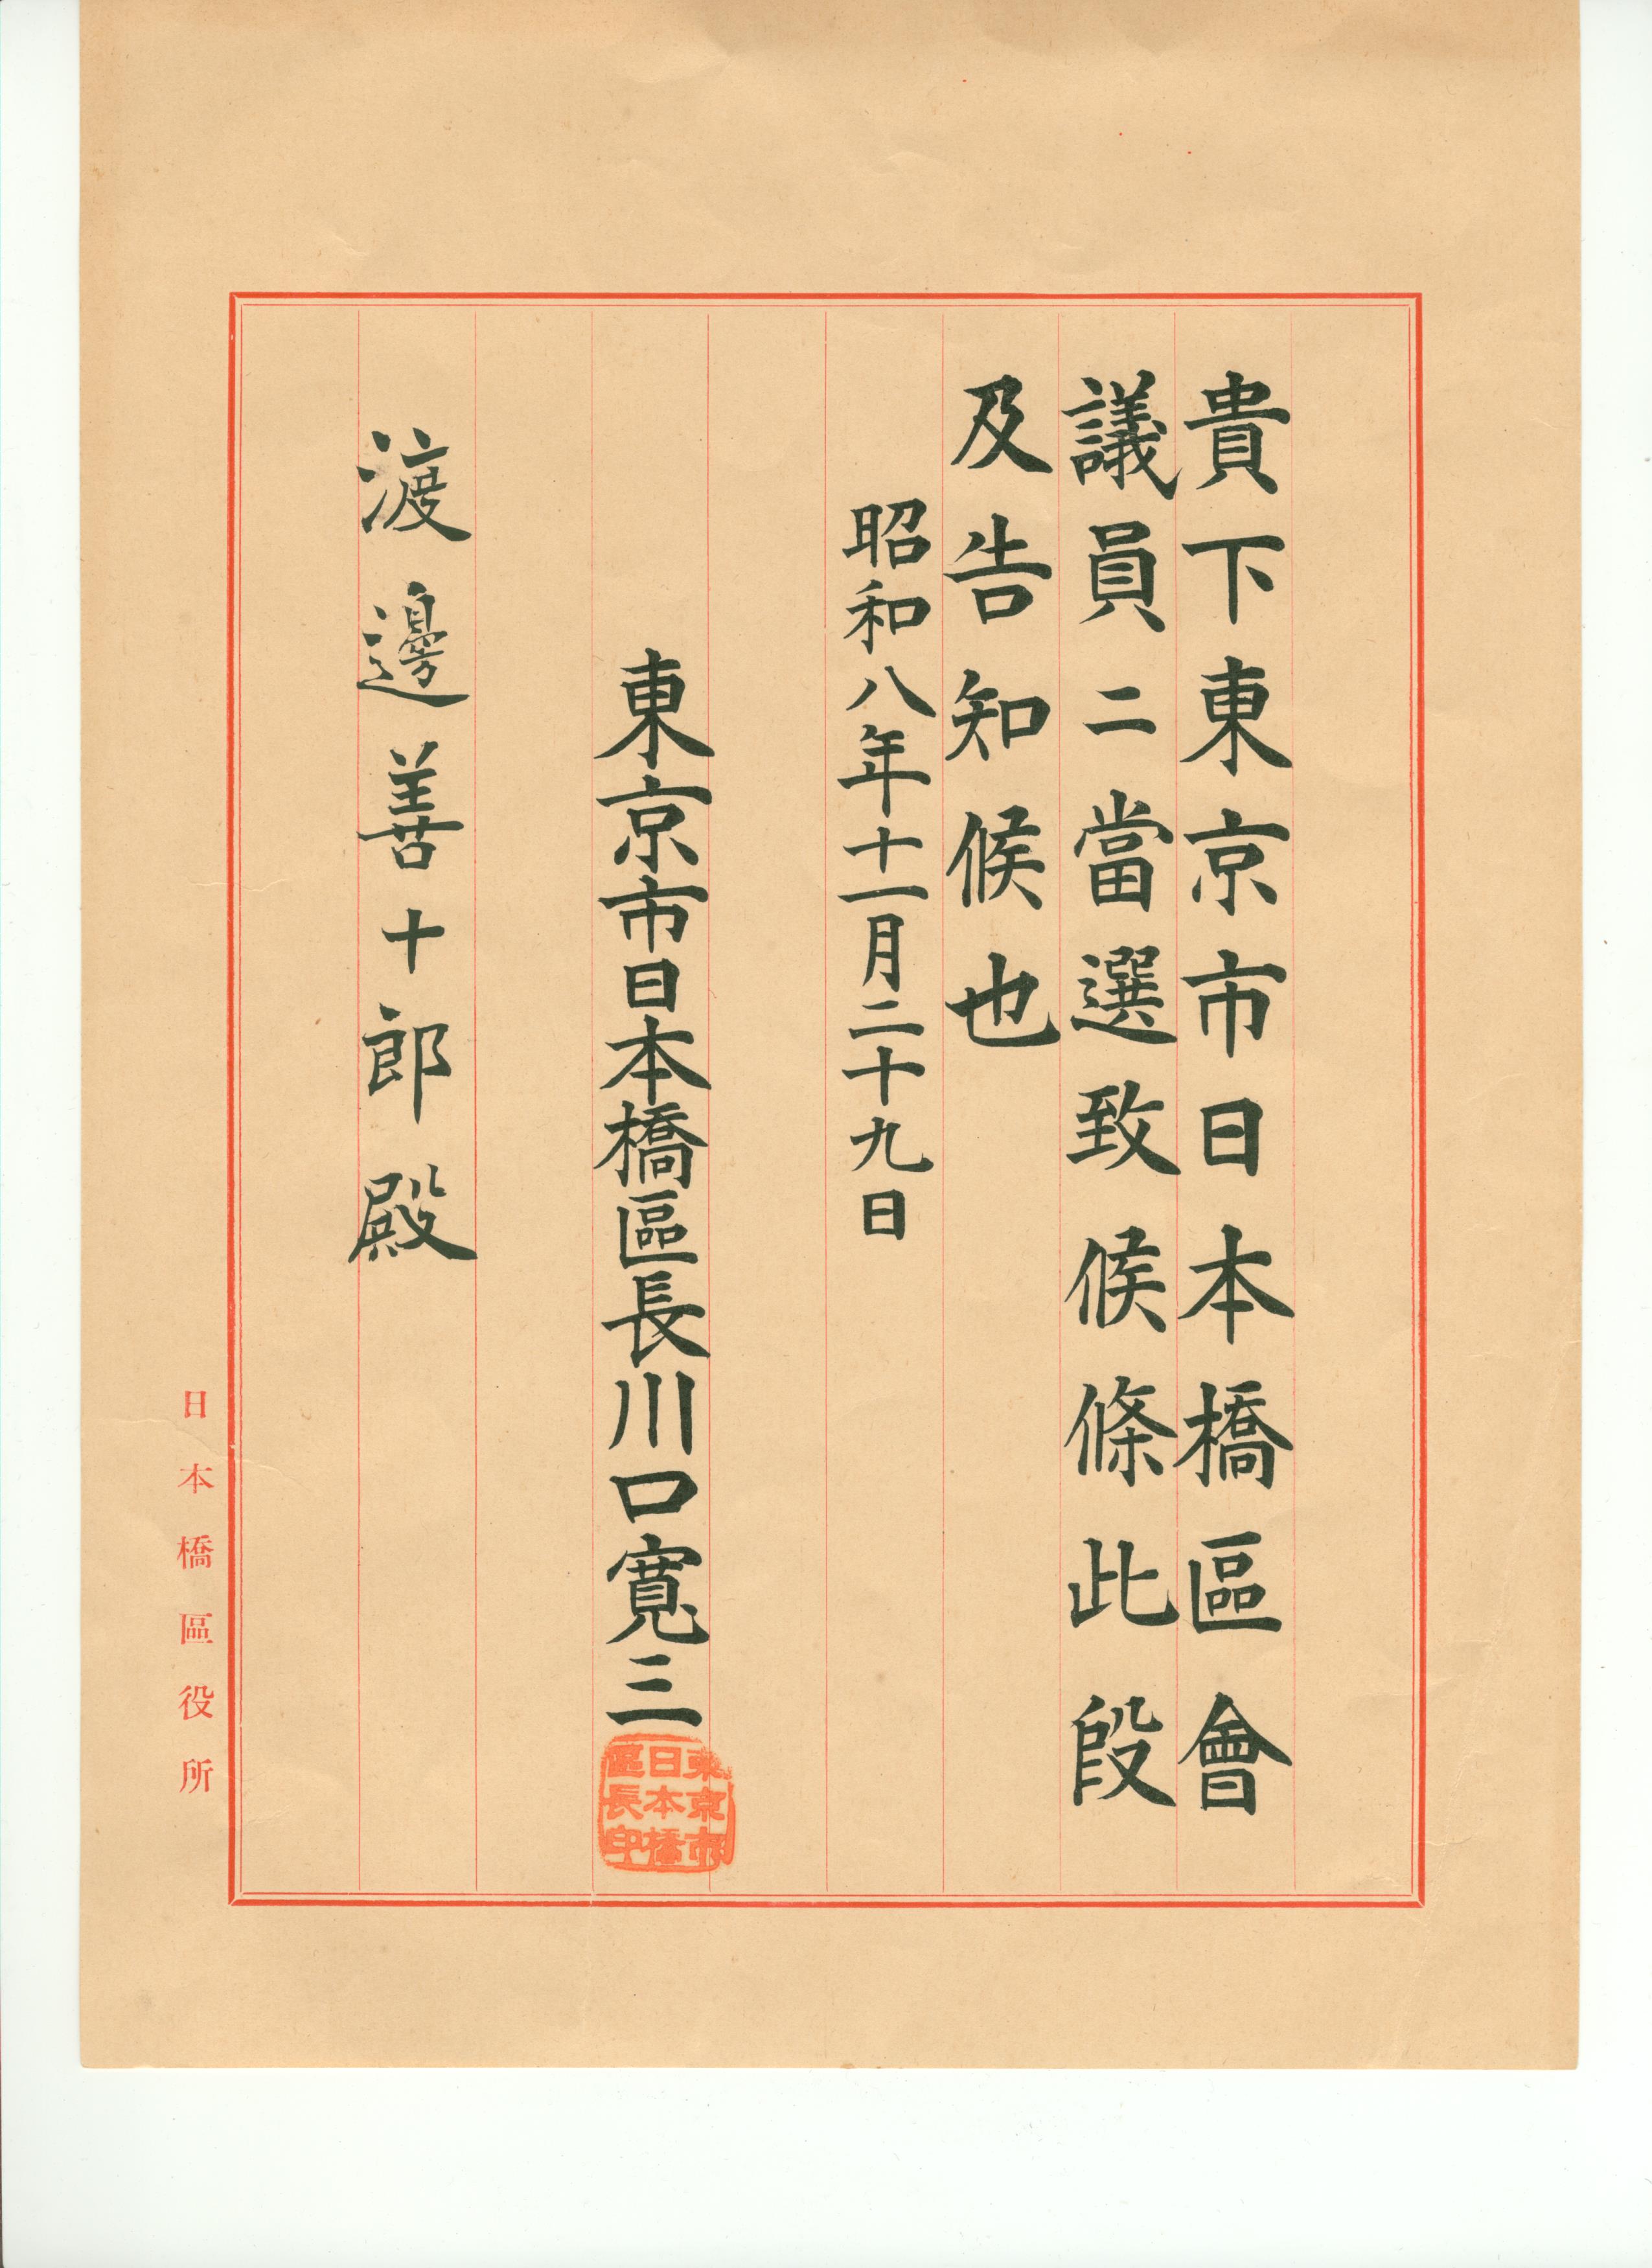 貴下東京市日本橋區會
議員ニ當選致候條此段
及告知候也
昭和八年十一月二十九日
東京市日本橋區長川口寛三
東京市
日本橋
區長印
渡邊善十郎殿
日本橋區役所